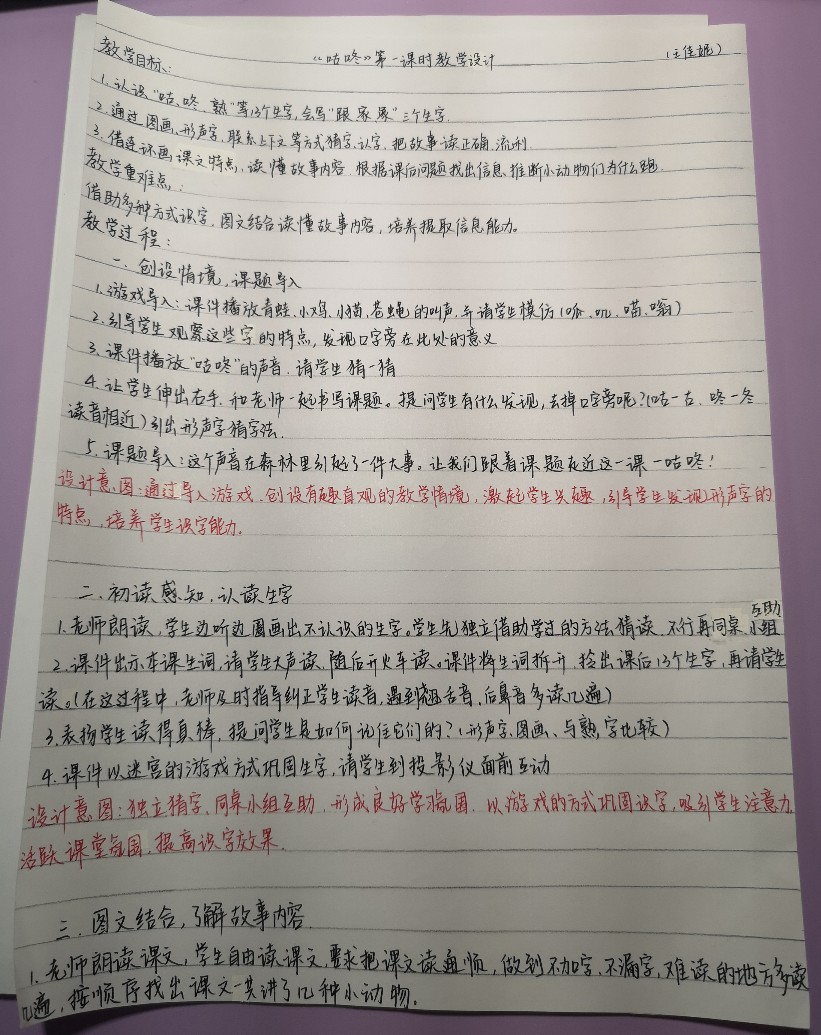 《咕咚》第一课时教学设计 (王佳妮)
教学目标:
1.认识"咕、咚、熟"等13个生字,会写"跟家象"三个生字.
2.通过图画、形声字,联系上下文等方式猜字、认字.把故事读正确、流利.
3.借连环画课文特点,读懂故事内容.根据课后问题找出信息、推断小动物们为什么跑.
教学重难点:
借助多种方式识字,图文结合读懂故事内容,培养提取信息能力。
教学过程:
一.创设情境,课题导入
1.游戏导入:课件播放青蛙、小鸡、小猫、苍蝇的叫声,并请学生模仿(呱、叽、喵、嗡)
2.引导学生观察这些字的特点,发现口字旁在此处的意义
3.课件播放"咕咚"的声音.请学生猜一猜
4.让学生伸出右手.和老师一起书写课题。提问学生有什么发现,去掉口字旁呢?(咕—古、咚—冬
读音相近)引出形声字猜字法.
5.课题导入:这个声音在森林里引起了一件大事。让我们跟着课题走近这一课—咕咚!
设计意图:通过导入游戏.创设有趣直观的教学情境,激起学生兴趣,引导学生发现形声字的
特点,培养学生识字能力。
二.初读感知,认读生字
1.老师朗读,学生边听边圈画出不认识的生字。学生先独立借助学过的方法猜读,不行再同桌、小组
互助
2.课件出示本课生词,请学生大声读、随后开火车读。课件将生词拆开,捡出课后13个生字,再请学生
读。(在这过程中,老师及时指导纠正学生读音,遇到翘舌音,后鼻音多读几遍)
3.表扬学生读得真棒,提问学生是如何记住它们的?(形声字、图画、与熟字比较)
4.课件以迷宫的游戏方式巩固生字,请学生到投影仪面前互动
设计意图:独立猜字,同桌小组互助,形成良好学习氛围.以游戏的方式巩固识字,吸引学生注意力
活跃课堂氛围,提高识字效果.
三.图文结合,了解故事内容.
1.老师朗读课文,学生自由读课文,要求把课文读通顺,做到不加字、不漏字,难读的地方多读
几遍,按顺序找出课文一共讲了几种小动物.